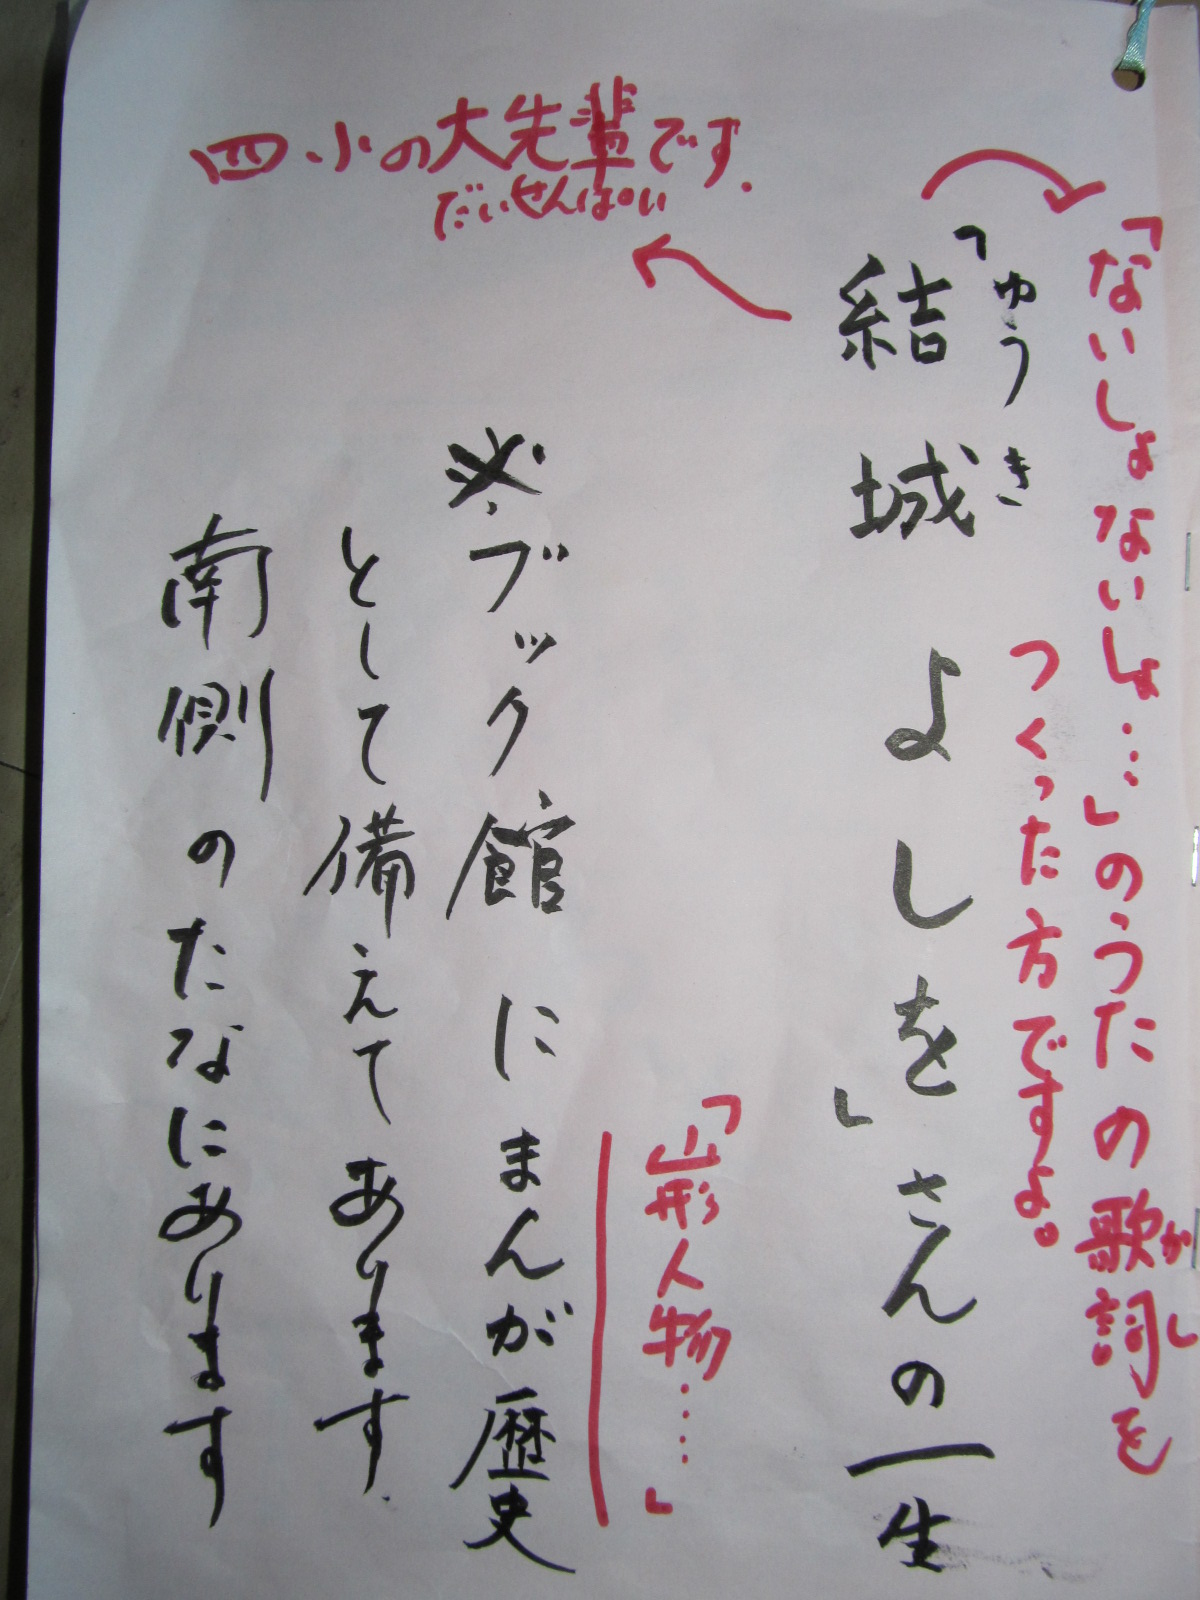 「ないしょないしょ・・・」のうたの歌詞を
かし
つくった方ですよ。
ゆうき
「結城よしを」さんの一生
四小の大先輩です.
だいせんぱい
「山形人物・・・・」
※ブック館にまんが歴史
として備えてあります.
南側のたなにあります